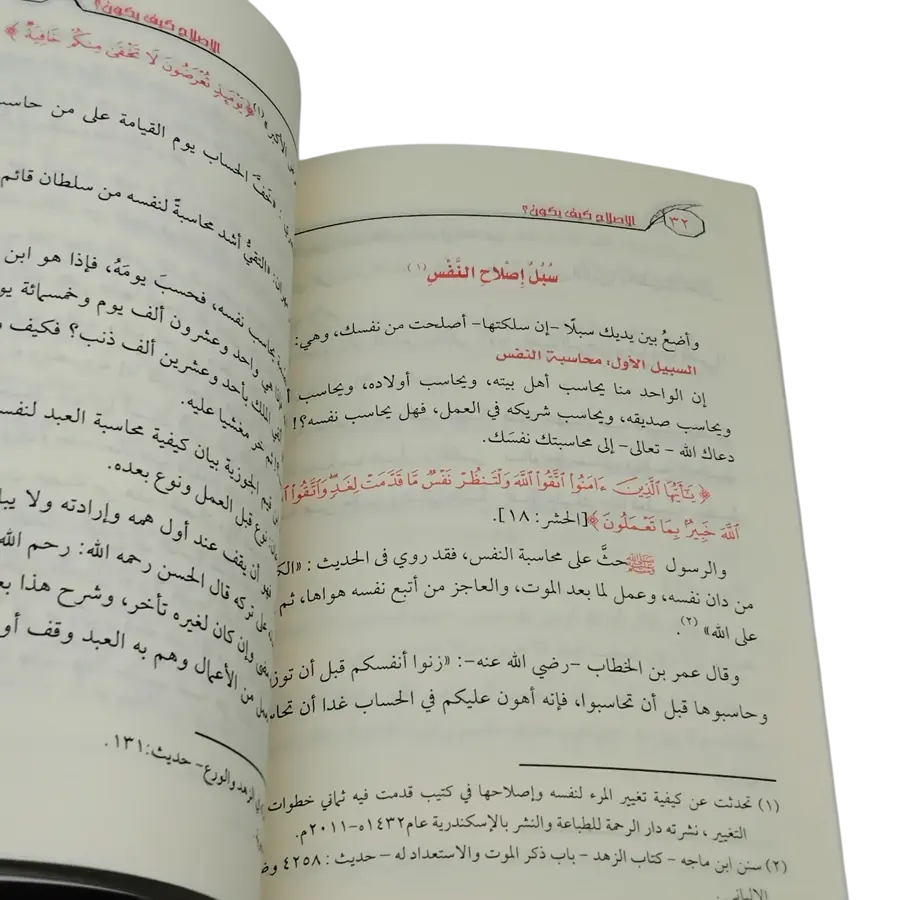 الإصلاح كيف يكون؟
٣٢
سُبُلُ إِصْلَاحِ النَّفْسِ (١)
وأضعُ بين يديك سبلًا -إن سلكتها- أصلحت من نفسك، وهي:
السبيل الأول: محاسبة النفس
إن الواحد منا يحاسب أهل بيته، ويحاسب أولاده، ويحاسب
ويحاسب صديقه، ويحاسب شريكه في العمل، فهل يحاسب نفسه؟!
دعاك الله - تعالى- إلى محاسبتك نفسَك.
﴿ يَٰٓأَيُّهَا ٱلَّذِينَ ءَامَنُوا۟ ٱتَّقُوا۟ ٱللَّهَ وَلْتَنظُرْ نَفْسٌ مَّا قَدَّمَتْ لِغَدٍ ۖ وَٱتَّقُوا۟
ٱللَّهَ خَبِيرٌۢ بِمَا تَعْمَلُونَ ﴾[الحشر: ١٨].
والرسول ﷺ حثَّ على محاسبة النفس، فقد روي فى الحديث :
من دان نفسه، وعمل لما بعد الموت، والعاجز من أتبع نفسه هواها، ثم
على الله» (٢).
وقال عمر بن الخطاب -رضي الله عنه-: «زنوا أنفسكم قبل أن
وحاسبوها قبل أن تحاسبوا، فإنه أهون عليكم في الحساب غدا أن
(١) تحدثت عن كيفية تغيير المرء لنفسه وإصلاحها في كتيب قدمت فيه ثماني خطوات
التغيير ، نشرته دار الرحمة للطباعة والنشر بالإسكندرية عام١٤٣٢ه-٢٠١١م.
(٢) سنن ابن ماجه - كتاب الزهد - باب ذكر الموت والاستعداد له - حديث : ٤٢٥٨
الألباني .
الإصلاح كيف يكون؟
﴿يَوْمَئِذٍ تُعْرَضُونَ لَا تَخْفَىٰ مِنكُمْ خَافِيَةٌ ﴾
الأكبر»(١)
: «خفَّ الحساب يوم القيامة على من
«التقيُّ أشد محاسبةً لنفسه من سلطان قائم
يحاسب نفسه، فحسبَ يومَهُ، فإذا هو ابن
هي واحد وعشرون ألف يوم وخمسمائة
الملك بأحد وعشرين ألف ذنب؟ فكيف
خر مغشيا عليه.
قيم الجوزية بيان كيفية محاسبة العبد
نوع قبل العمل ونوع بعده.
أن يقف عند أول همه وإرادته ولا
على تركه قال الحسن رحمه الله: رحم الله
وإن كان لغيره تأخر، وشرح هذا
من الأعمال وهم به العبد وقف
الزهد والورع- حديث:١٣١.